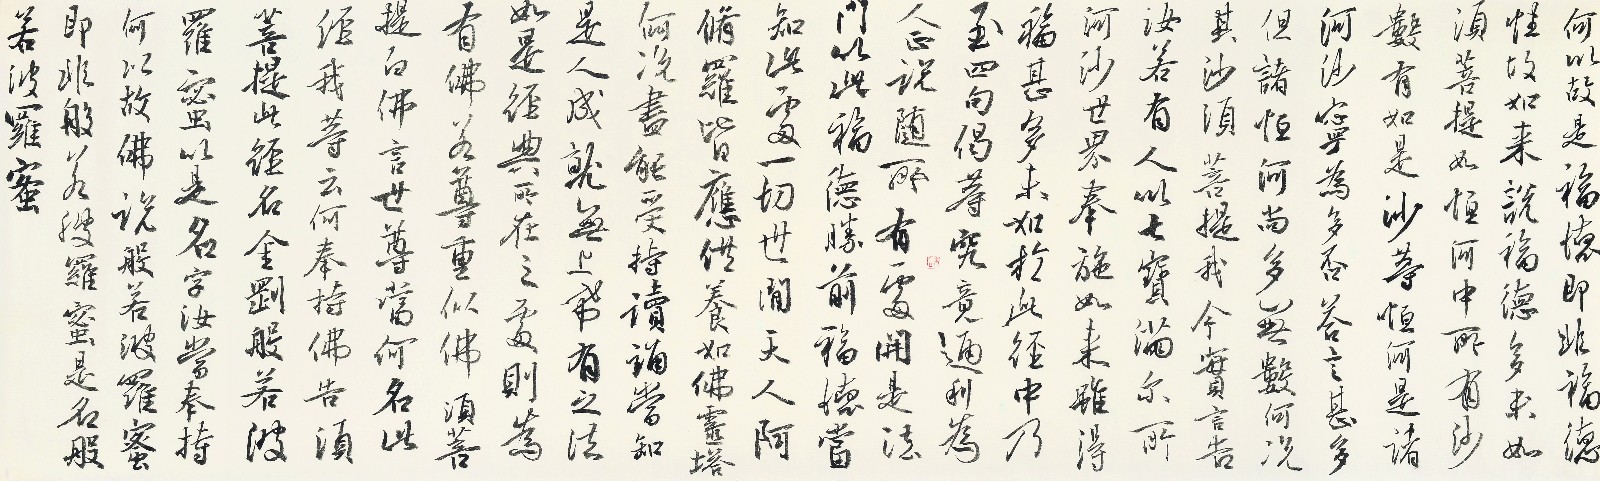 何以故是福德即非福德
性故如来說福德多未如
須菩提如恒河中所有沙
數有如是沙等恒河是諸
河沙寧為多否答言甚多
但諸恒河尚多無數何况
其沙須菩提我今實言告
汝若有人以七寶滿尔所
河沙世界奉施如来雖得
福甚多未如於此經中乃
至四句偈等究竟通利為
人正說随所有處開是法
門以此福德勝前福德當
知此處一切世間天人阿
脩羅皆應供養如佛靈塔
何况盡能受持讀誦當知
是人成就無上希有之法
如是經典所在之處則為
有佛若尊重似佛須菩
提白佛言世尊當何名此
經我等云何奉持佛告須
菩提此經名金剛般若波
羅蜜以是名字汝當奉持
何以故佛說般若波羅蜜
即非般若波羅蜜是名般
若波羅蜜